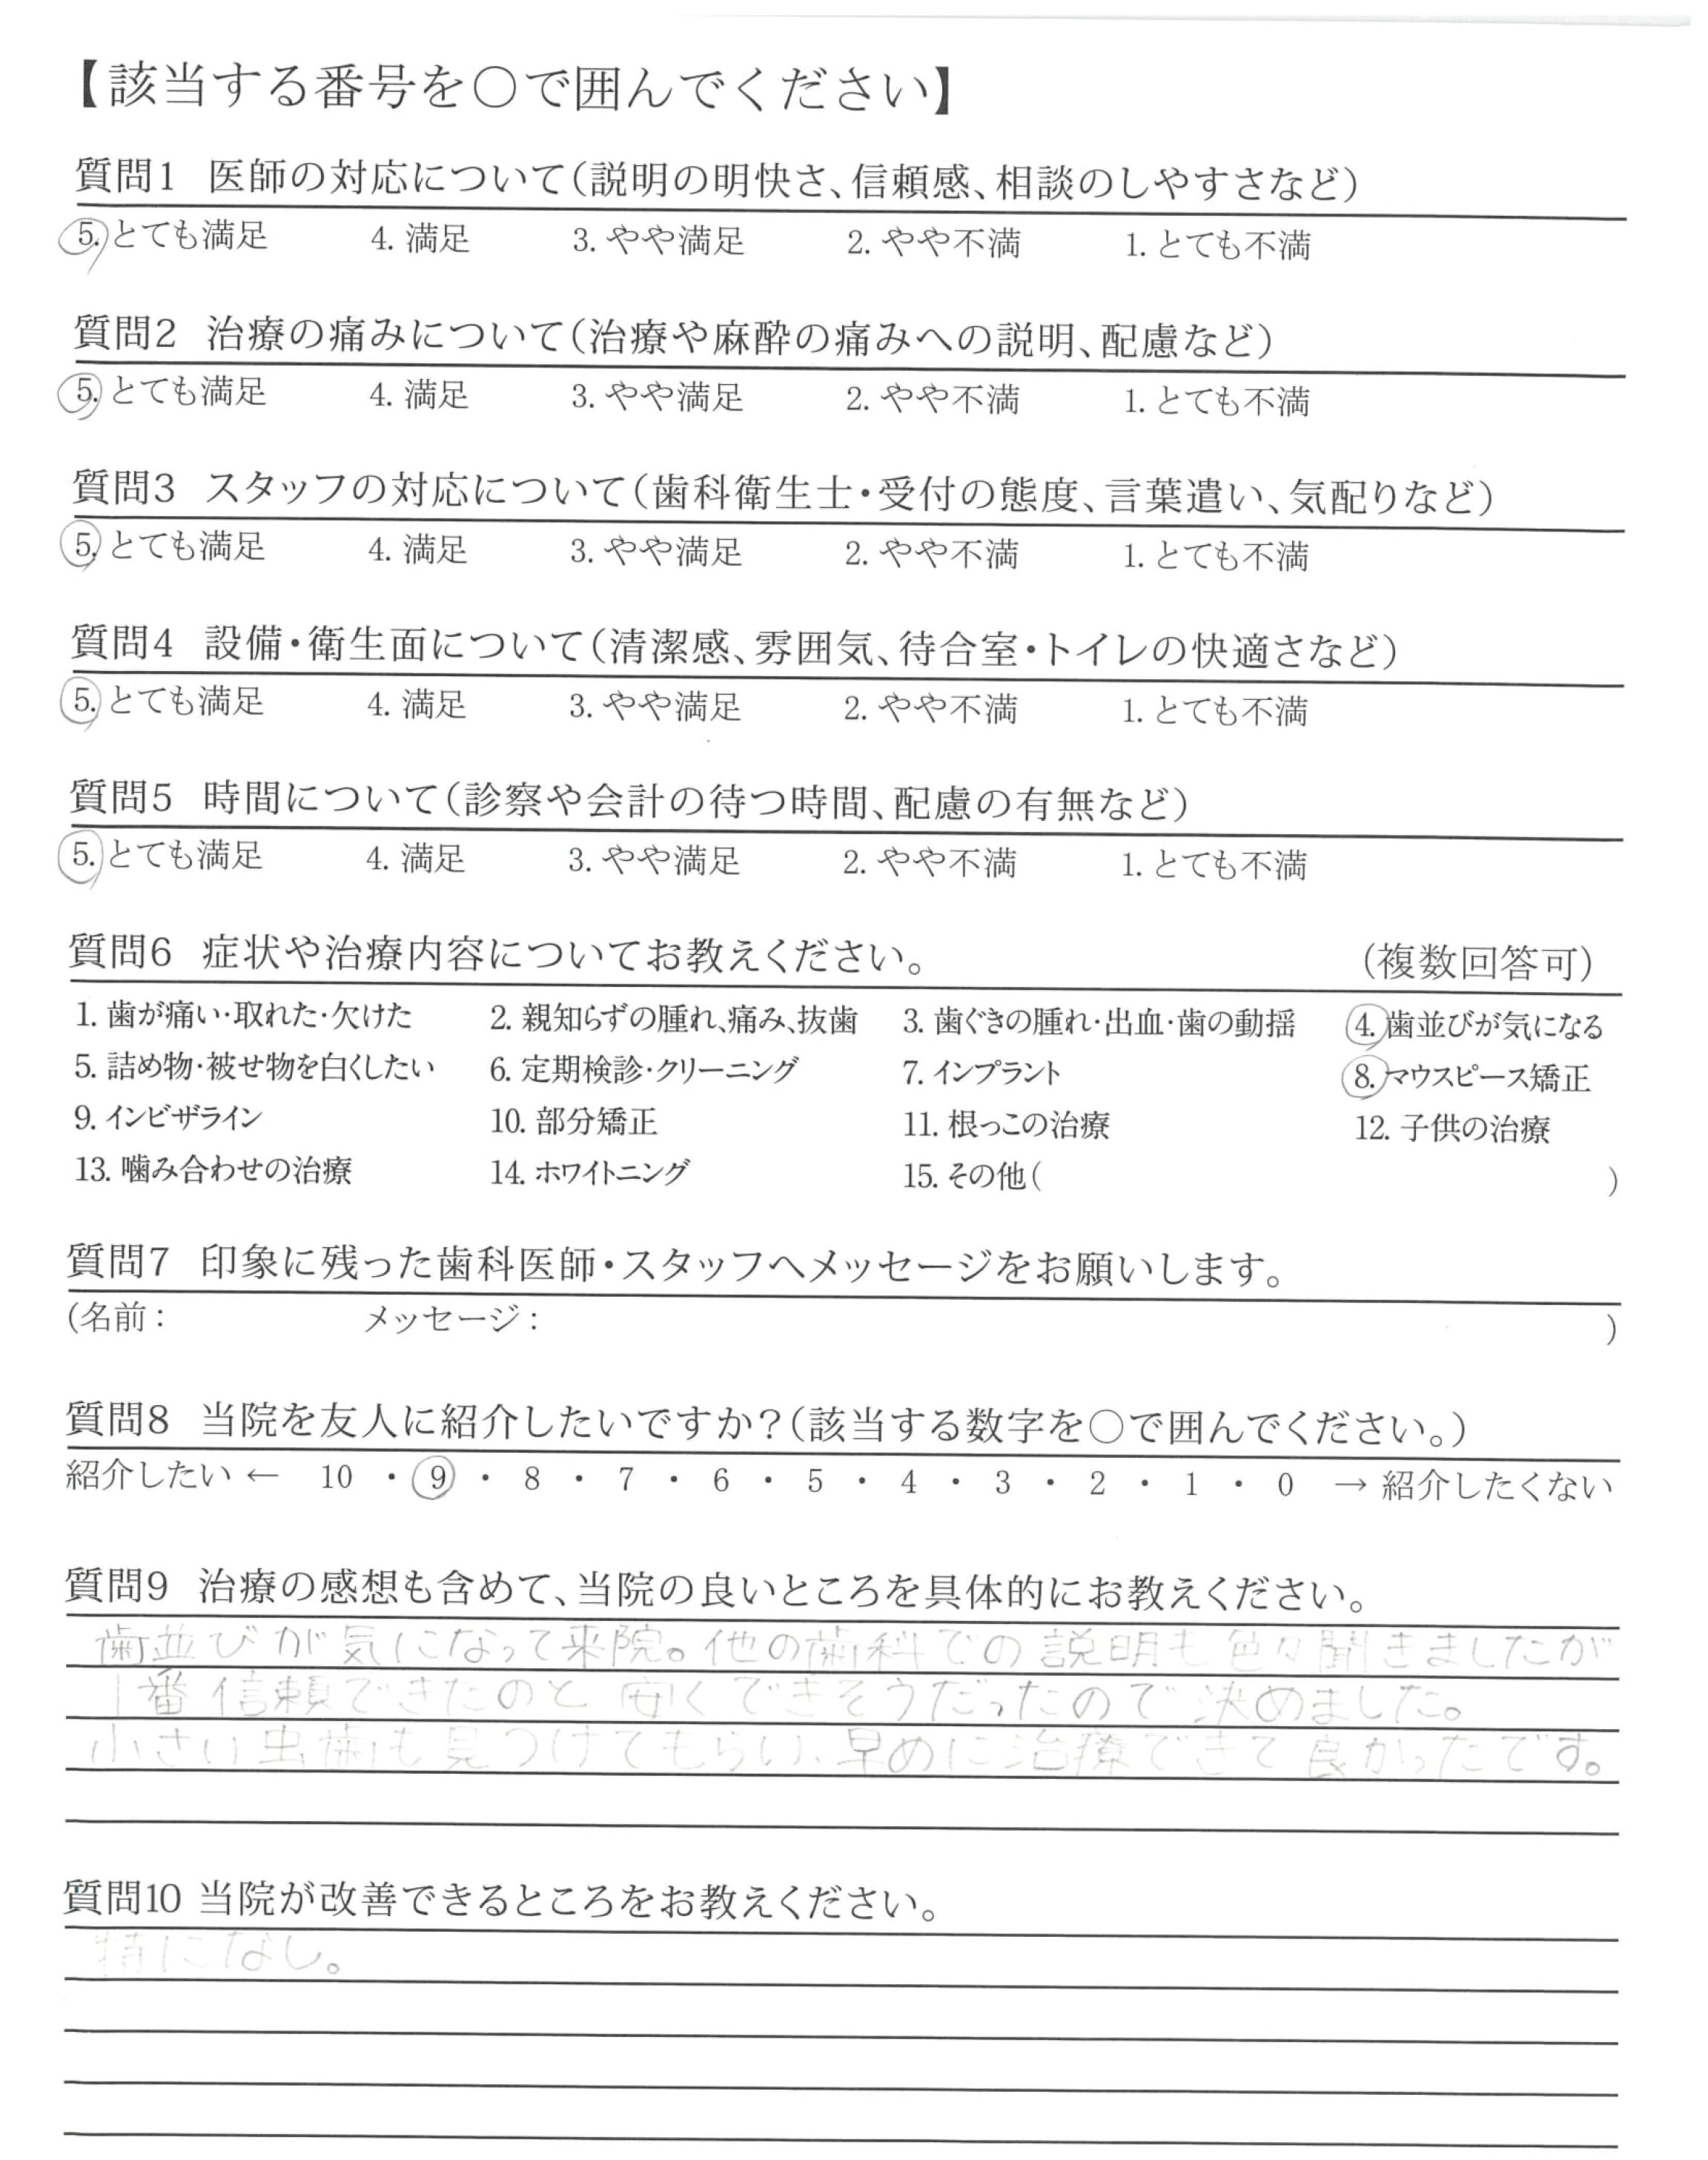 【該当する番号を○で囲んでください】
質問1 医師の対応について(説明の明快さ、信頼感、相談のしやすさなど)
5. とても満足 4. 満足 3. やや満足 2. やや不満 1. とても不満
質問2 治療の痛みについて(治療や麻酔の痛みへの説明、配慮など)
5. とても満足 4. 満足 3. やや満足 2. やや不満 1. とても不満
質問3 スタッフの対応について(歯科衛生士・受付の態度、言葉遣い、気配りなど)
5. とても満足 4. 満足 3. やや満足 2. やや不満 1. とても不満
質問4 設備・衛生面について(清潔感、雰囲気、待合室・トイレの快適さなど)
5. とても満足 4. 満足 3. やや満足 2. やや不満 1. とても不満
質問5 時間について(診察や会計の待つ時間、配慮の有無など)
5. とても満足 4. 満足 3. やや満足 2. やや不満 1. とても不満
質問6 症状や治療内容についてお教えください。 (複数回答可)
1. 歯が痛い・取れた・欠けた 2. 親知らずの腫れ、痛み、抜歯 3. 歯ぐきの腫れ・出血・歯の動揺 4. 歯並びが気になる
5. 詰め物・被せ物を白くしたい 6. 定期検診・クリーニング 7. インプラント 8. マウスピース矯正
9. インビザライン 10. 部分矯正 11. 根っこの治療 12. 子供の治療
13. 噛み合わせの治療 14. ホワイトニング 15. その他( )
質問7 印象に残った歯科医師・スタッフへメッセージをお願いします。
(名前: メッセージ: )
質問8 当院を友人に紹介したいですか?(該当する数字を○で囲んでください。)
紹介したい ← 10 ・ 9 ・ 8 ・ 7 ・ 6 ・ 5 ・ 4 ・ 3 ・ 2 ・ 1 ・ 0 → 紹介したくない
質問9 治療の感想も含めて、当院の良いところを具体的にお教えください。
歯並びが気になって来院。他の歯科での説明も色々聞きましたが
1番信頼できたのと安くできそうだったので決めました。
小さい虫歯も見つけてもらい、早めに治療できて良かったです。
質問10 当院が改善できるところをお教えください。
特になし。